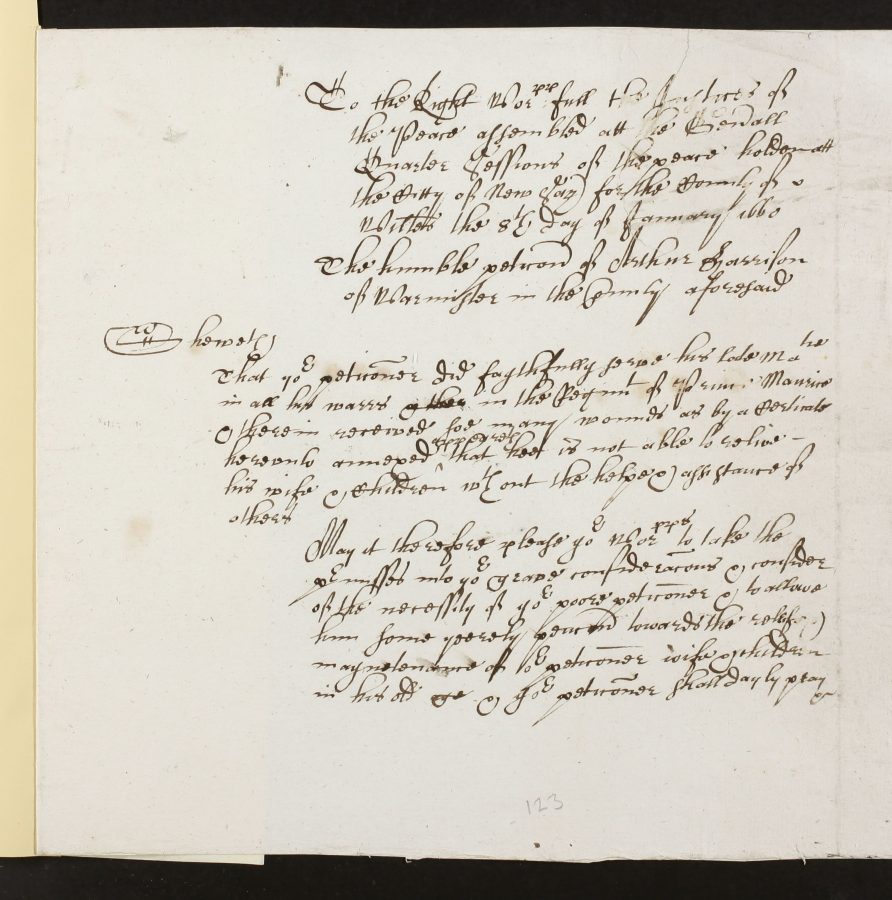 To the Right Worpp full the Justices of
the Peace assembled att the Genall
Quarter Sessions of the peace holden att
the Citty of New Sarũ for the County of
Wiltes the 8th day of January 1660
The humble peticoñ of Arthur Harrison
of Warmister in the County aforesaid
Sheweth
That yor peticõner did faythfully serve his late Matie
in all his warrs in the Regimt of Prince Maurice
& therein receeved soe many wounds as by a Certicate
hereunto annexed appeareth that hee is not able to relive
his wife & Children wth out the helpe & assistance of
others
May it therefore please yor Worpps to take the
prmisses into yor grave consideracõns & consider
of the necessity of yor poore peticõner & to allowe
him some yeerely pencõn towards the releife &
maynetenance of yor peticõner wife & children
in his old age & yor peticõner shall dayly pray
&c
123